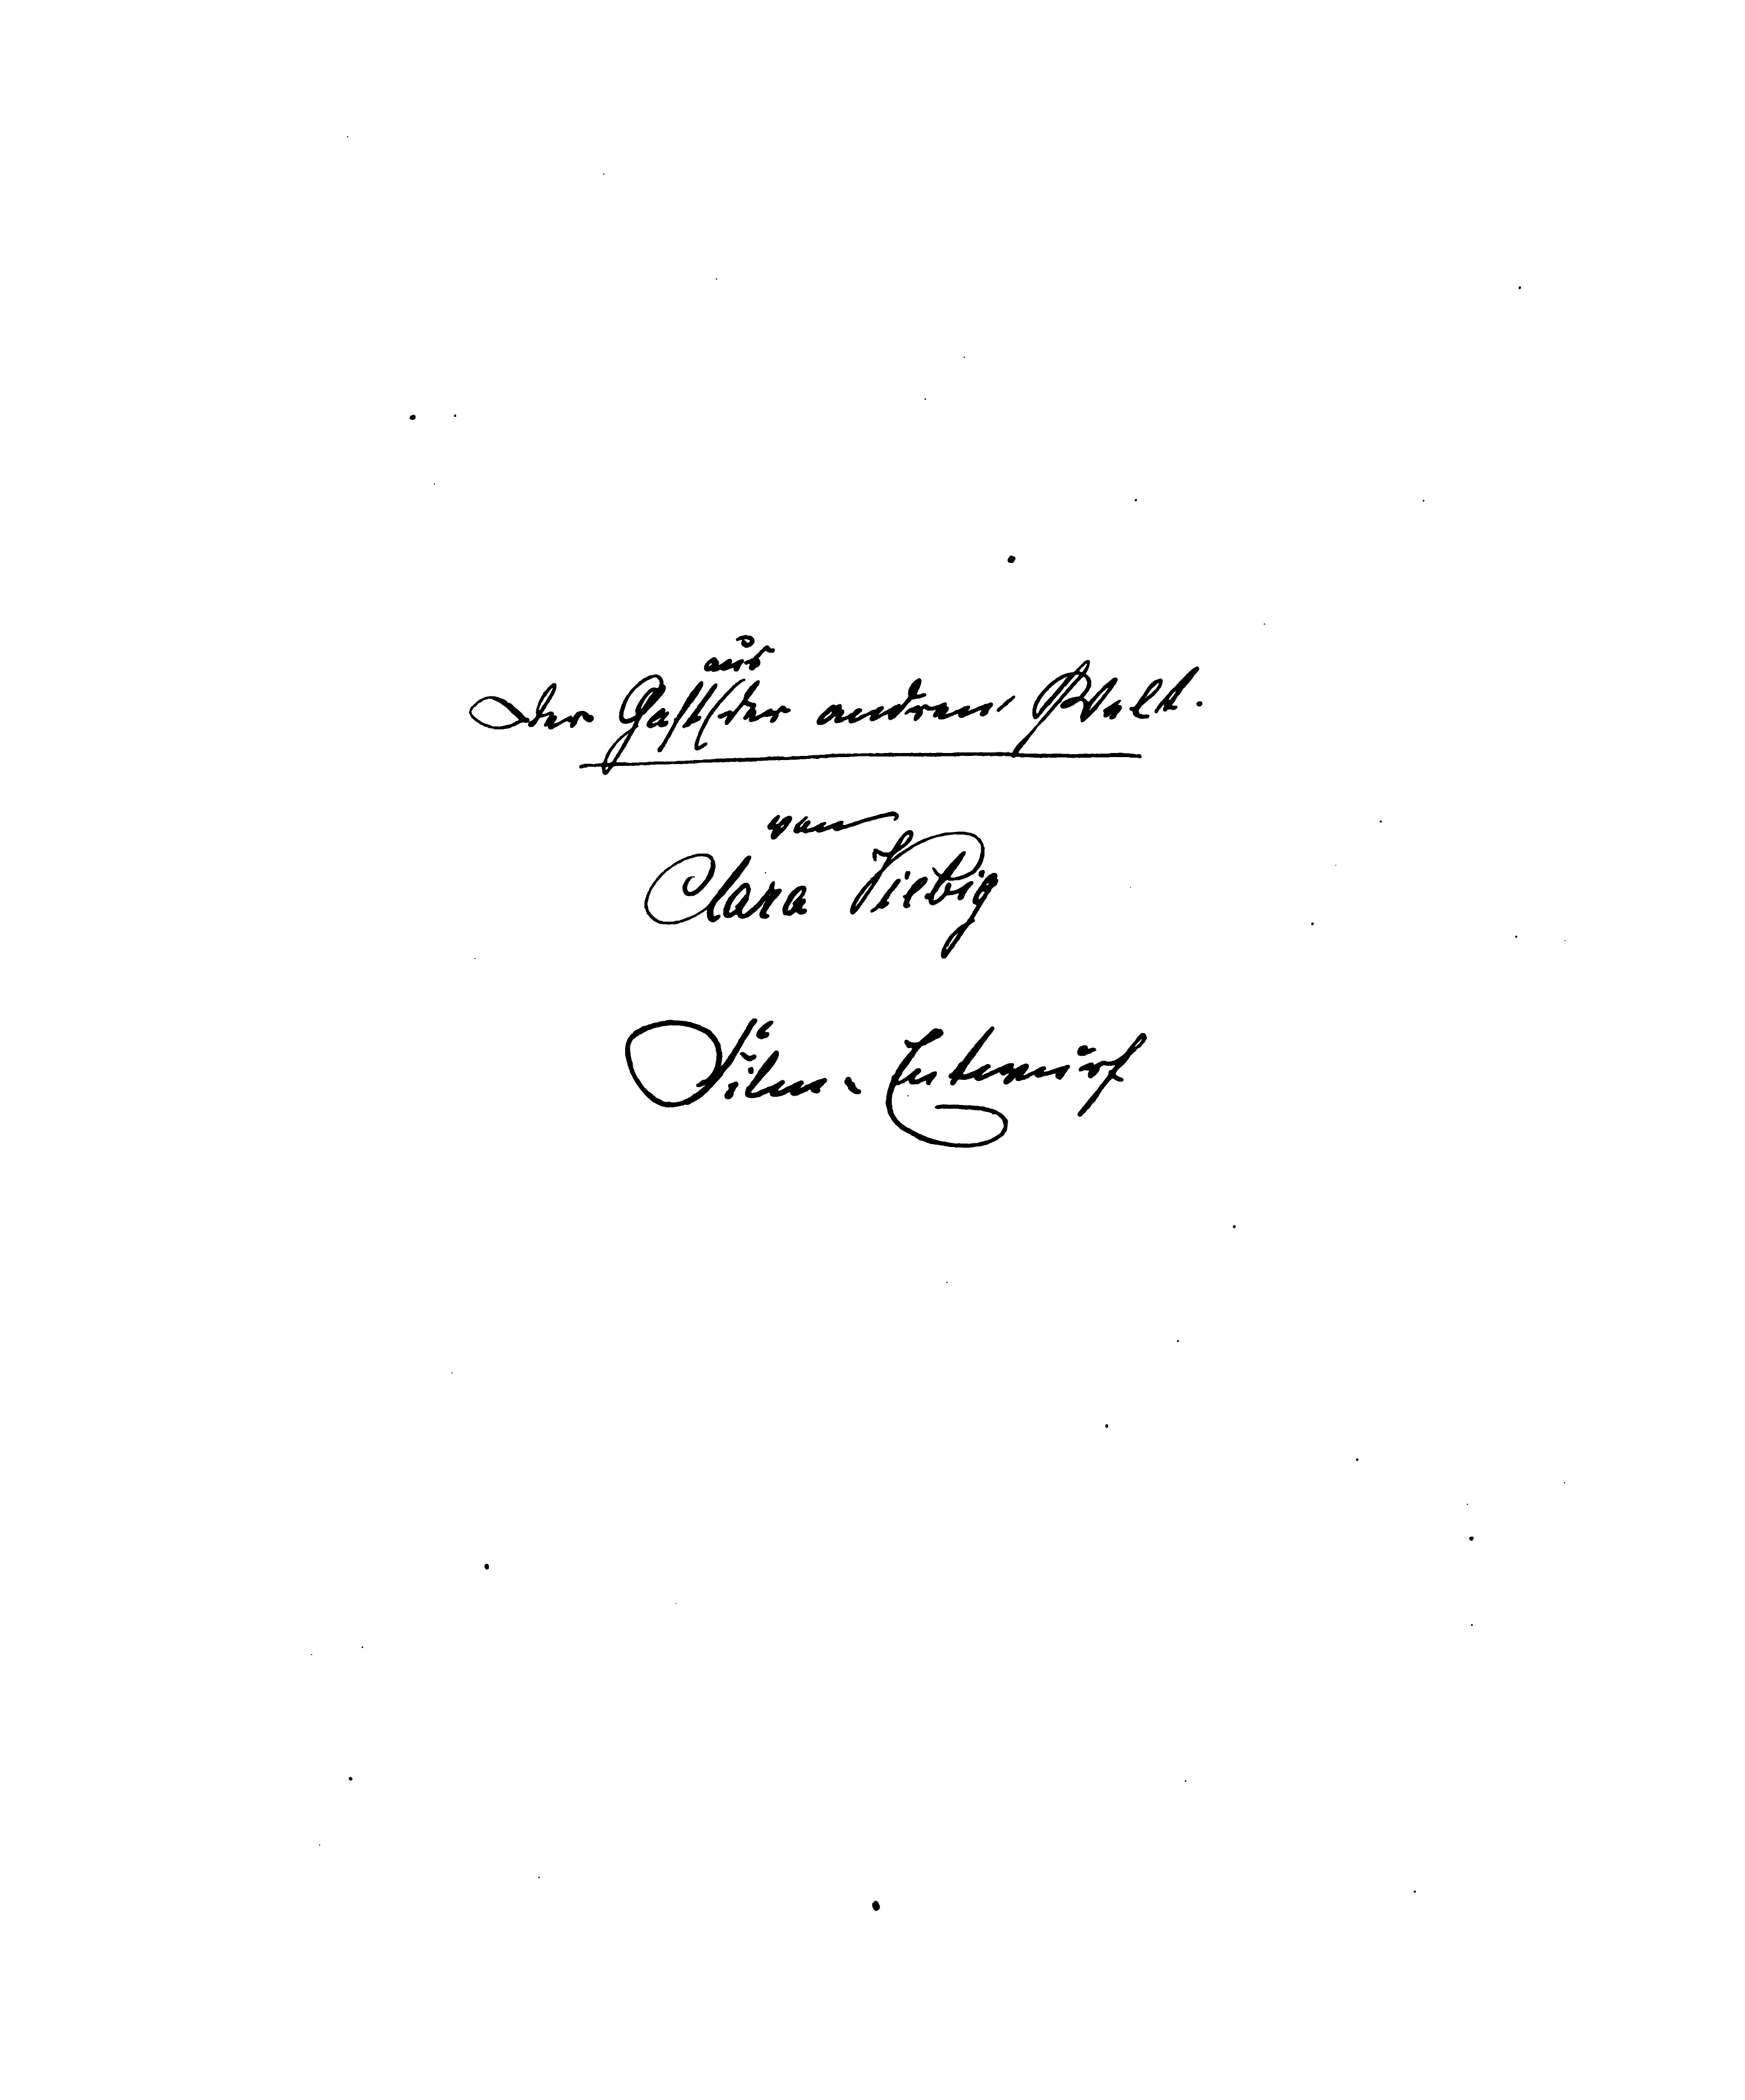 Der Gast aus der anderen Welt.
von
Clara Viebig
Film-Entwurf